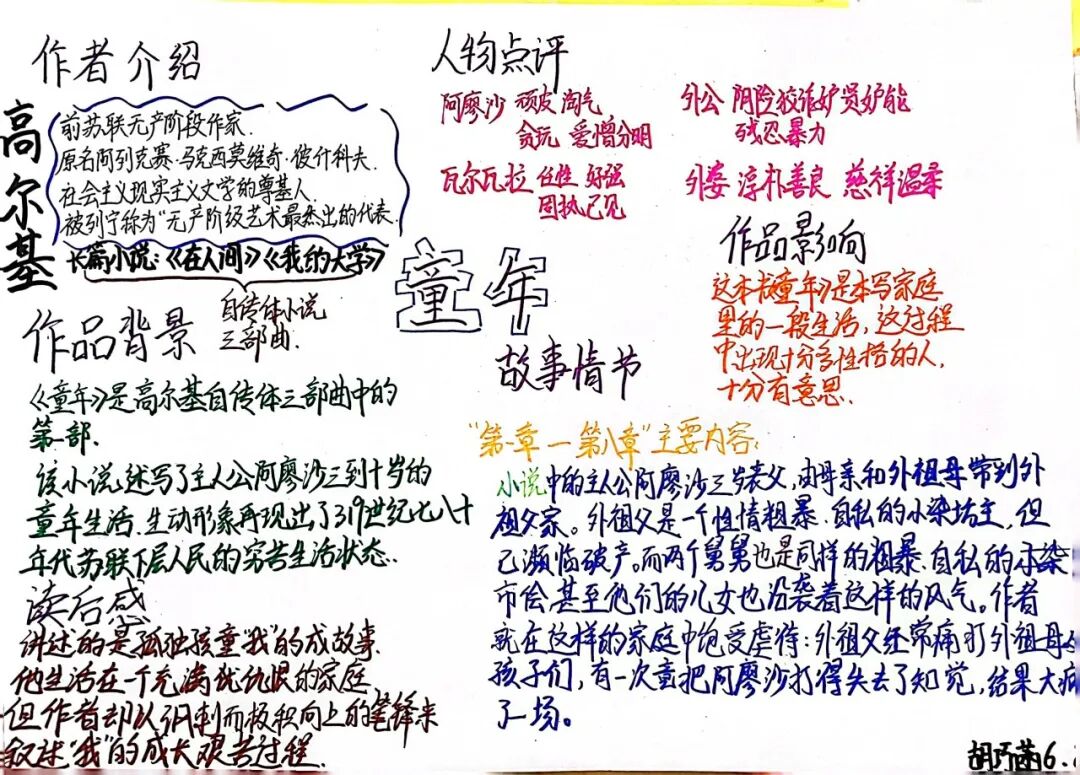 作者介绍
高尔基
前苏联无产阶段作家.
原名阿列克赛·马克西莫维奇·彼什科夫.
社会主义现实主义文学的尊基人
被列宁称为"无产阶级艺术最杰出的代表.
长篇小说:《在人间》《我的大学》
自传体小说
三部曲.
作品背景
《童年》是高尔基自传体三部曲中的
第一部.
该小说述写了主人公阿廖沙三到十岁的
童年生活,生动形象再现出了319世纪七八十
年代苏联下层人民的穷苦生活状态.
读后感
讲述的是孤独孩童"我"的成故事.
他生活在一个充满仇恨的家庭
但作者却以讽刺而极积向上的笔锋来
叙述"我"的成长艰苦过程.
人物点评
阿廖沙 顽皮淘气
贪玩 爱憎分明
瓦尔瓦拉 任性 好强
固执己见
外公 阴险狡诈妒贤妒能
残忍暴力
外婆 淳朴善良 慈祥温柔
童年
作品影响
这本书童年》是本写家庭
里的一段生活,这过程
中出现十分多性格的人,
十分有意思.
故事情节
"第一章一第八章"主要内容:
小说中的主人公阿廖沙三岁丧父,由母亲和外祖母带到外
祖父家。外祖父是一个性情粗暴.自私的小染坊主,但
已濒临破产。而两个舅舅也是同样的粗暴.自私的小染
市侩,甚至他们的儿女也沿袭着这样的风气。作者
就在这样的家庭中饱受虐待:外祖父经常痛打外祖母
孩子们,有一次童把阿廖沙打得失去了知觉,结果大病
了一场。